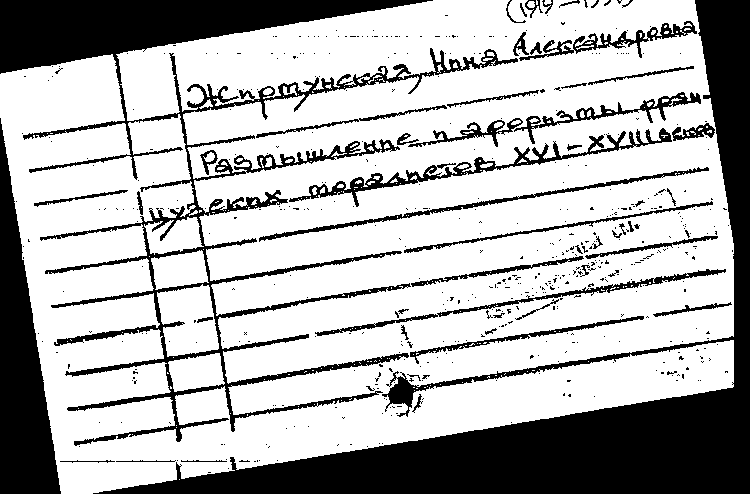 Жиртунская, Нина Александровна
Размышление и афоризмы фран-
цузских моралистов XVI-XVIII веков